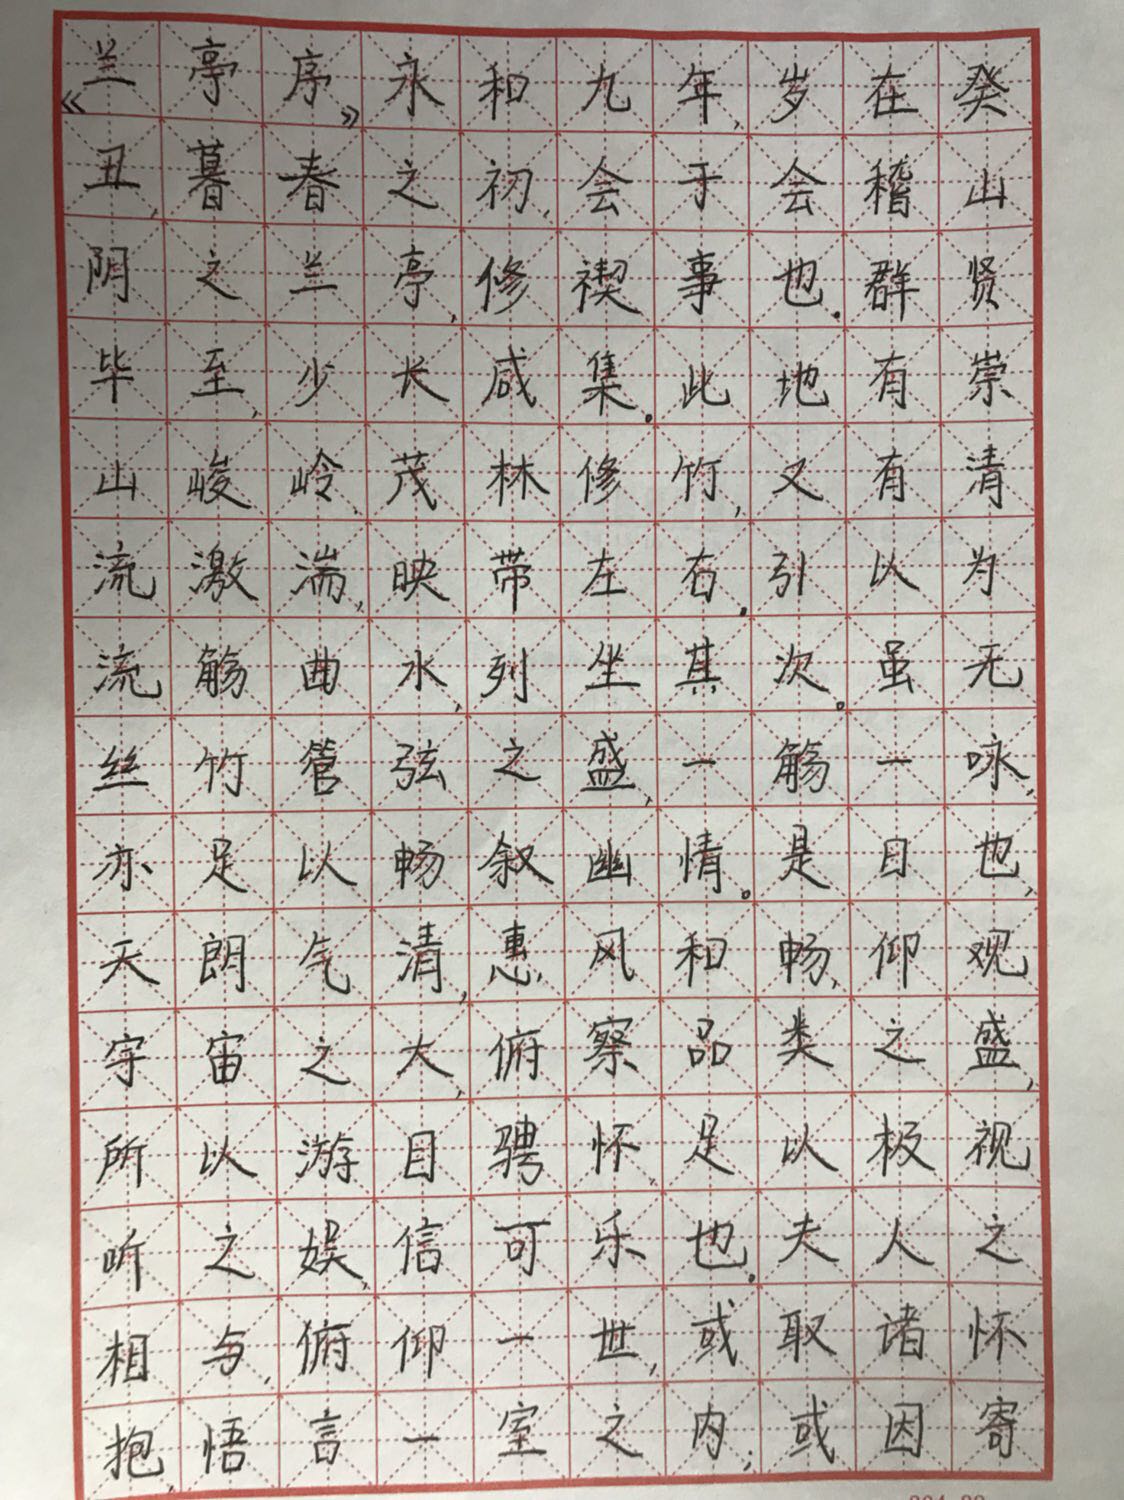 《兰亭序》永和九年,岁在癸
丑,暮春之初,会于会稽山
阴之兰亭,修禊事也.群贤
毕至,少长咸集。此地有崇
山峻岭,茂林修竹,又有清
流激湍,映带左右。引以为
流觞曲水,列坐其次。虽无
丝竹管弦之盛,一觞一咏,
亦足以畅叙幽情。是日也,
天朗气清,惠风和畅,仰观
宇宙之大,俯察品类之盛,
所以游目骋怀,足以极视
听之娱,信可乐也.夫人之
相与,俯仰一世,或取诸怀
抱,悟言一室之内;或因寄